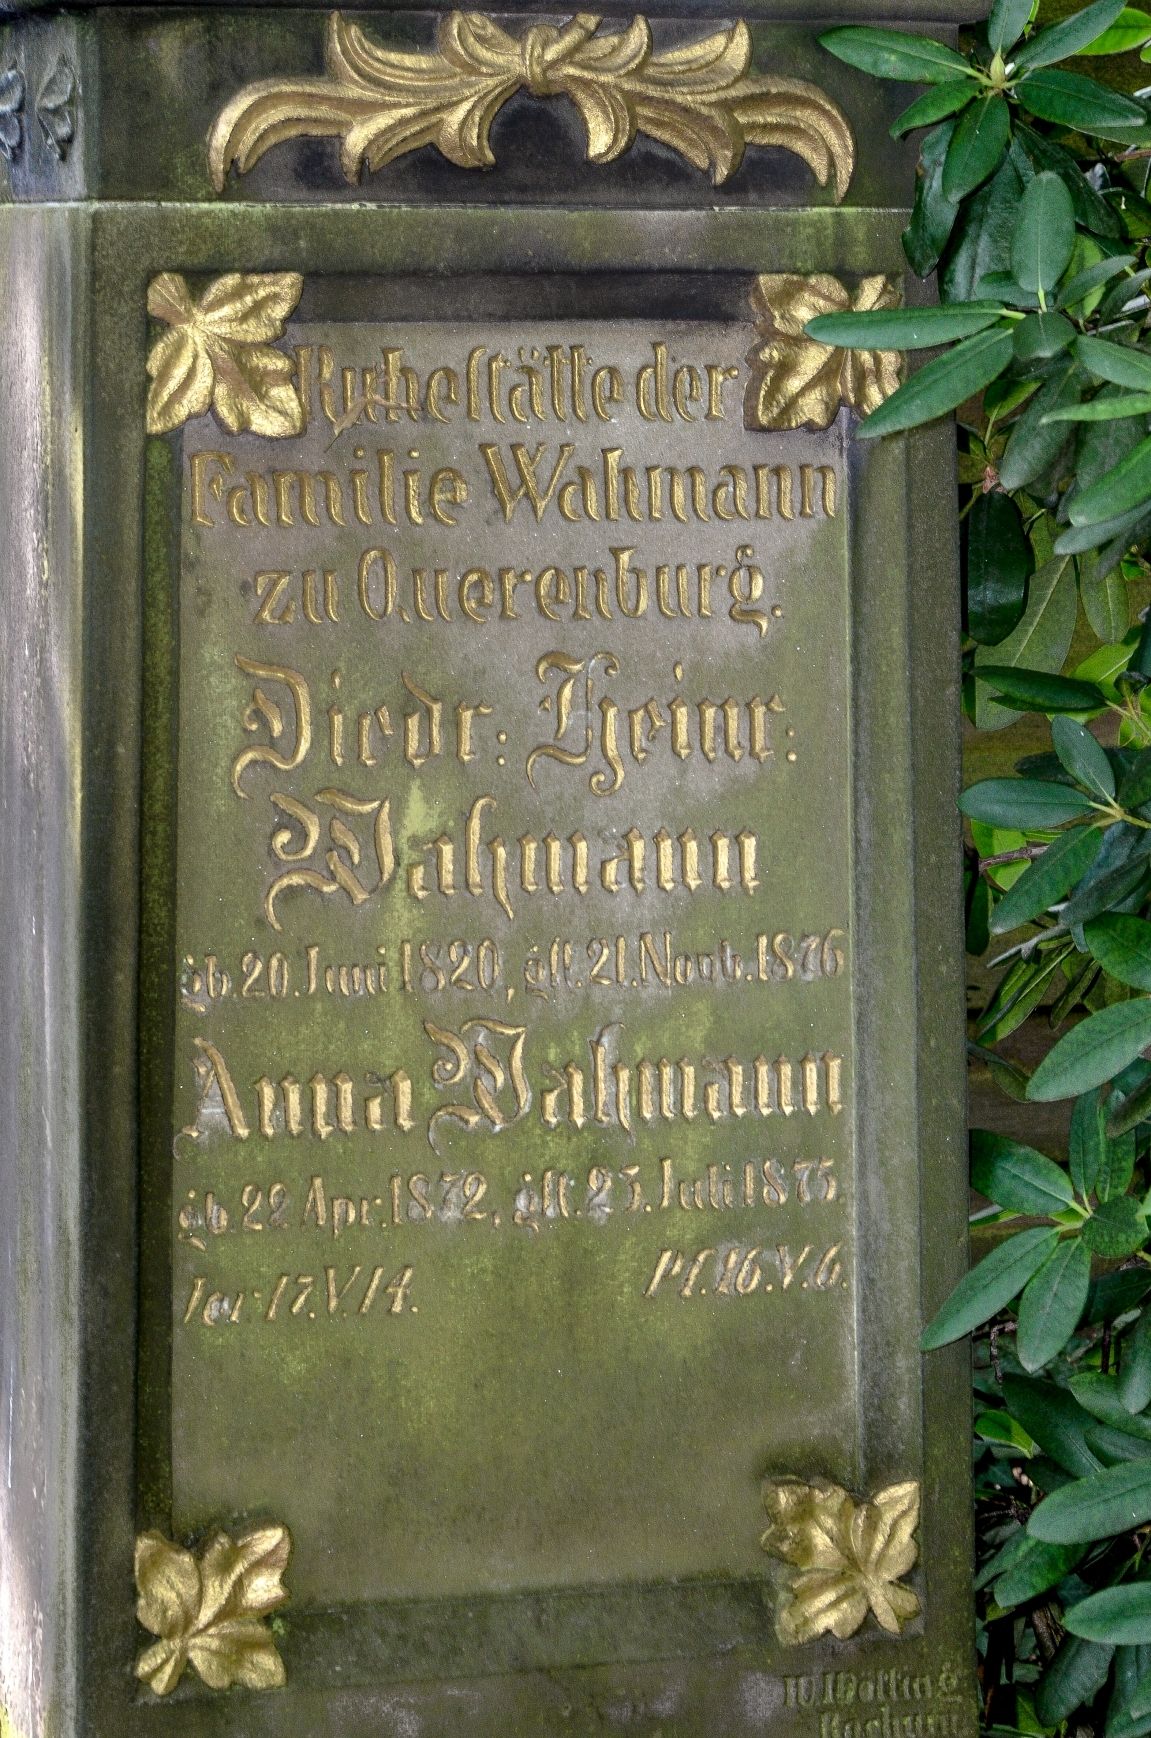 Ruhestätte der
Familie Wahmann
zu Querenburg.
Diedr: Heinr:
Wahmann
gb. 20. Juni 1820, gst. 21. Novb. 1876
Anna Wahmann
gb 22 Apr. 1872, gst. 23. Juli 1875.
Jer: 17. V. 14. Pf. 16. V. 6.
Bochum